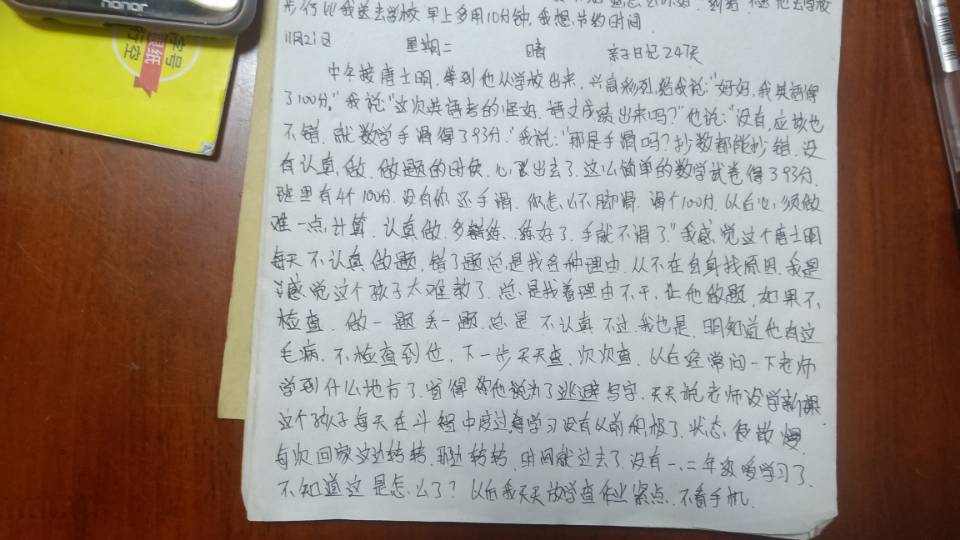 honor
步行比我送去学校早上多用10分钟,我想节约时间.
11月21日 星期二 晴 亲子日记247天
中午接唐士明,等到他从学校出来,兴高彩烈,给我说:"好好,我英语得
了100分."我说:"这次英语考的怪好,语文成绩出来吗?"他说:"没有,应该也
不错,就数学手滑得了93分."我说:"那是手滑吗?抄数都能抄错,没
有认真做,做题的时候,心飞出去了,这么简单的数学试卷得了93分,
班里有4个100分,没有你还手滑,你怎么不脚滑,滑个100分,以后心,须做
难一点,计算,认真做,多练练,练好了,手就不滑了."我感觉这个唐士明
每天不认真做题,错了题总是找各种理由,从不在自身找原因,我是
感觉这个孩子太难教了,总是找着理由不干,让他做题,如果不
检查,做一题丢一题,总是不认真不过我也是,明知道他有这
毛病,不检查到位,下一步天天查,次次查,以后经常问一下老师
学到什么地方了,觉得他说为了逃避写字,天天说老师没学新课
这个孩子每天在斗智中度过,学习没有以前积极了,状态很散慢
每次回家这边转转,那边转转,时间就过去了,没有一、二年级爱学习了,
不知道这是怎么了?以后我天天放学查作业紧点,不看手机.